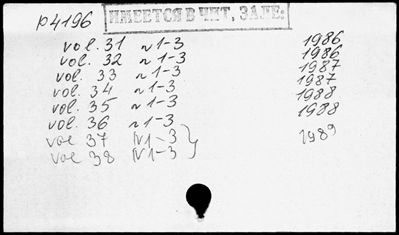 p4196 ИМЕЕТСЯ В ЧИТ. ЗАЛЕ.
vol. 31 n 1-3 1986
vol. 32 n 1-3 1986
vol. 33 n 1-3 1987
vol. 34 n 1-3 1987
vol. 35 n 1-3 1988
vol. 36 n 1-3 1988
vol 37 N 1-3 } 1989
vol 38 N 1-3